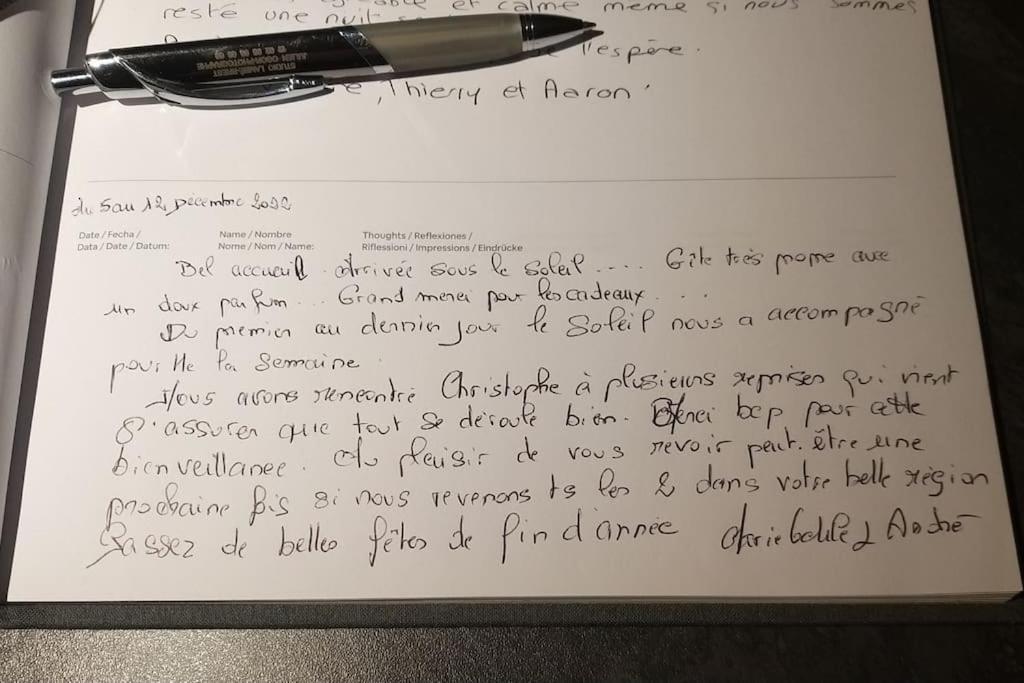 resté une nuit et calme même si nous sommes
l'espère.
, Thierry et Aaron.
STUDIO LAMBÉREST
JULIEN OGOR-PHOTOGRAPHE
du 5 au 12 Décembre 2022
Date / Fecha / Name / Nombre Thoughts / Reflexiones /
Data / Date / Datum: Nome / Nom / Name: Riflessioni / Impressions / Eindrücke
Bel accueil. Arrivée sous le soleil .... Gîte très propre avec
un doux parfum... Grand merci pour les cadeaux...
Du premier au dernier jour le Soleil nous a accompagné
pour tte la semaine.
Nous avons rencontré Christophe à plusieurs reprises qui vient
s'assurer que tout se déroule bien. Merci bcp pour cette
bienveillance. Au plaisir de vous revoir peut-être une
prochaine fois si nous revenons ts les 2 dans votre belle région
Passez de belles fêtes de fin d'année André